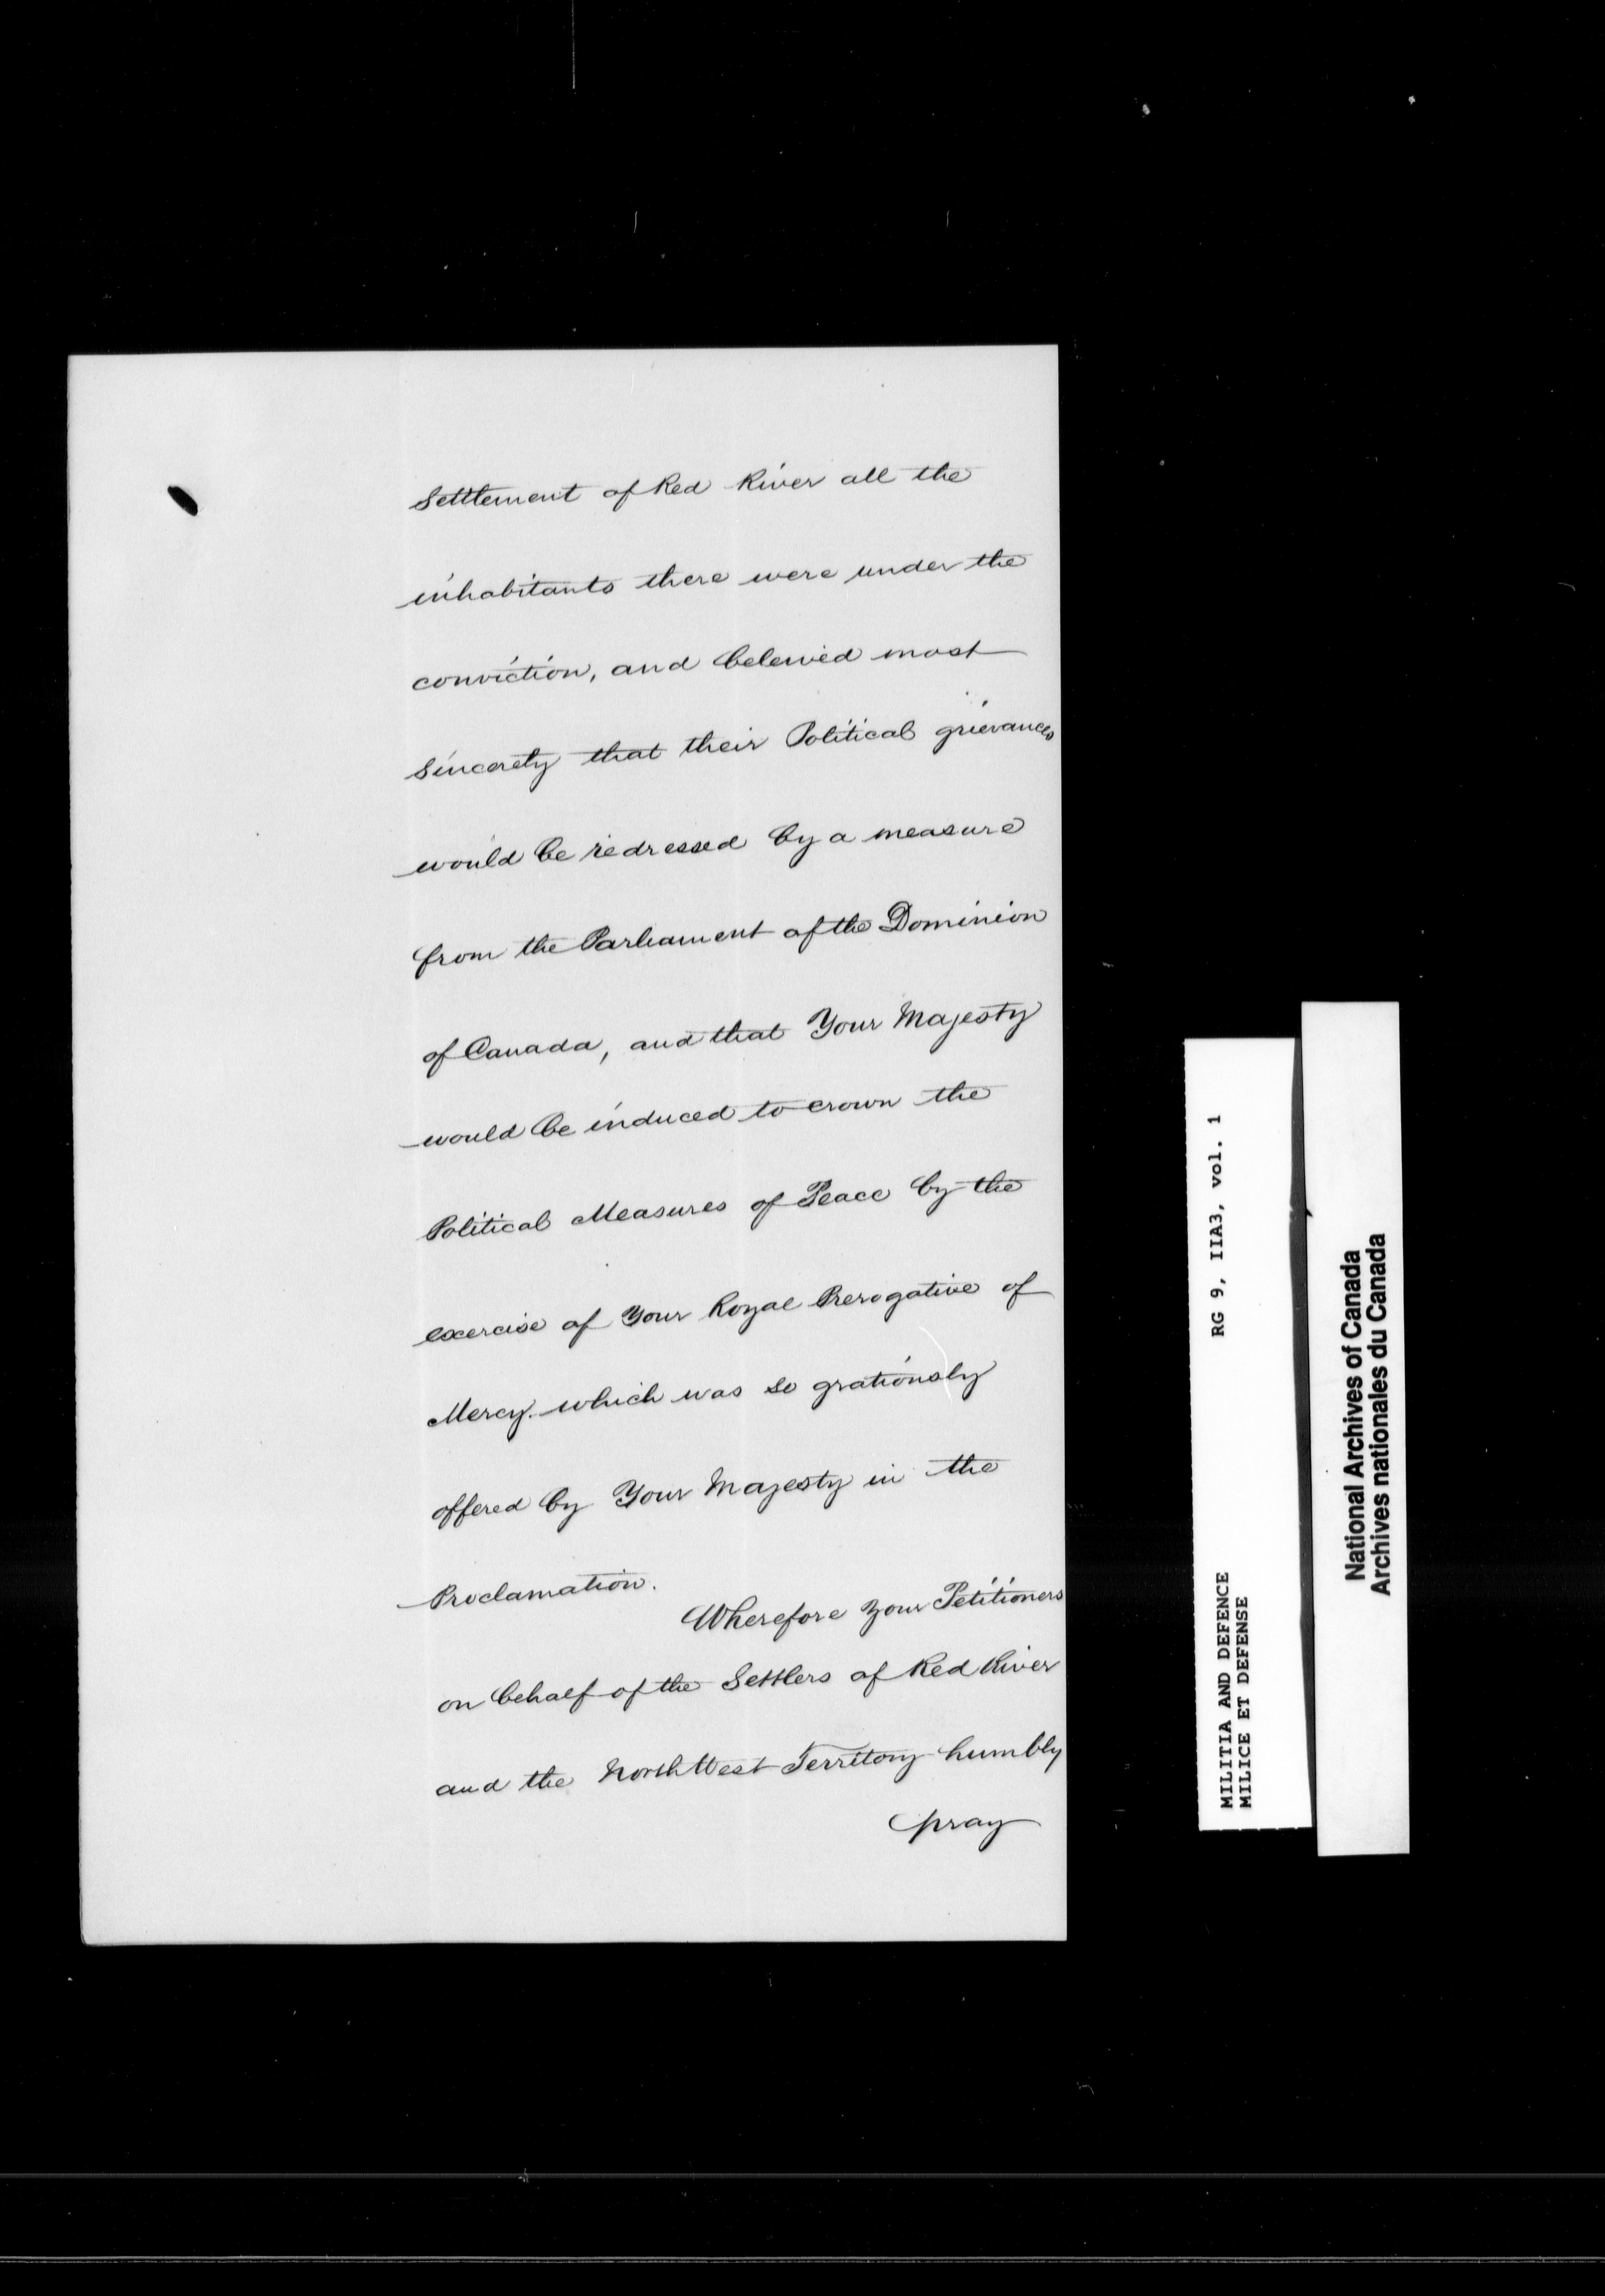 Settlement of Red River all the
inhabitants there were under the
conviction, and beleived most
sincerety that their Political grievances
would be redressed by a measure
from the Parliament of the Dominion
of Canada, and that Your Majesty
would be induced to crown the
Political Measures of Peace by the
exercise of Your Royal Prerogative of
Mercy. which was so gratiously
offered by Your Majesty in the
Proclamation.
Wherefore your Petitioners
on behalf of the Settlers of Red River
and the North West Territory humbly
pray
MILITIA AND DEFENCE RG 9, IIA3, vol. 1
MILICE ET DEFENSE
National Archives of Canada
Archives nationales du Canada